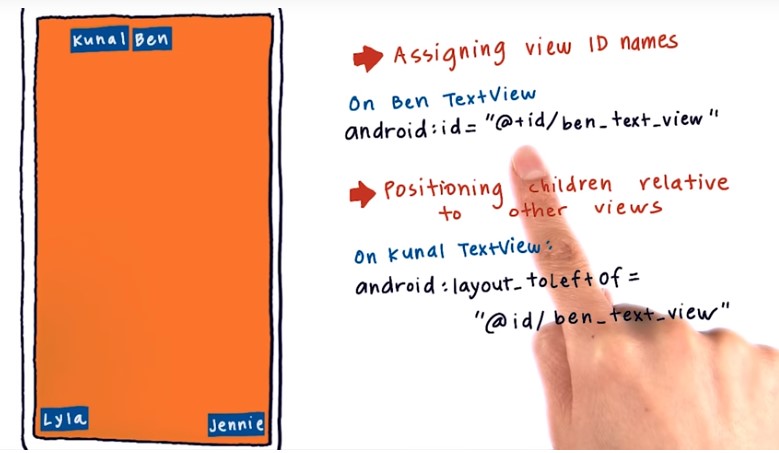 Kunal Ben
Lyla
Jennie
Assigning view ID names
On Ben TextView
android:id="@+id/ben_text_view"
Positioning children relative
to other views
On Kunal TextView:
android:layout_toLeftOf=
"@id/ben_text_view"